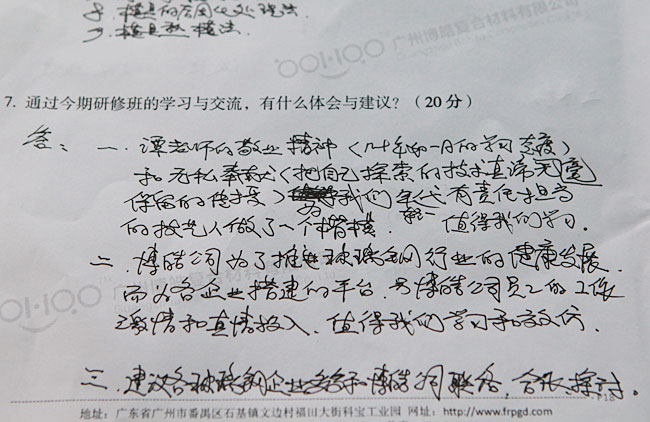 8. 模具的合固化处理法.
9. 模具 模法.
广州博皓复合材料有限公司
7. 通过今期研修班的学习与交流，有什么体会与建议？（20分）
答：一. 谭老师的敬业精神（几十年如一日的学习态度）
和无私奉献（把自己探索的技术真谛无毫
保留的传授） 为我们年代有责任担当
的技艺人做了一个楷模. 值得我们学习.
二. 博皓公司为了推进玻璃钢行业的健康发展.
而为各企业搭建的平台. 与博皓公司员工的工作
激情和真情投入. 值得我们学习和效仿.
三. 建议各玻璃钢企业多多和博皓公司联络，合作、探讨.
地址：广东省广州市番禺区石基镇文边村福田大街科宝工业园 网址：http://www.frpgd.com